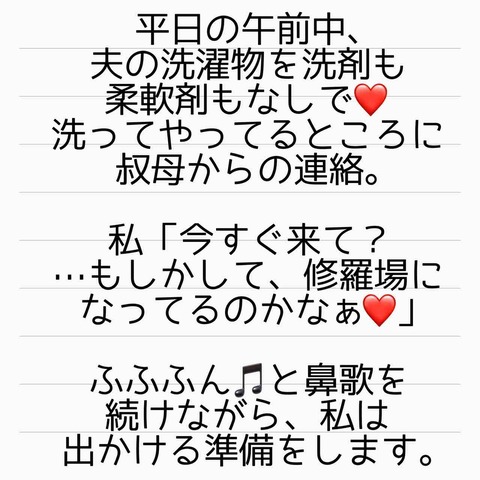 平日の午前中、
夫の洗濯物を洗剤も
柔軟剤もなしで❤️
洗ってやってるところに
叔母からの連絡。
私「今すぐ来て？
…もしかして、修羅場に
なってるのかなぁ❤️」
ふふふん🎵と鼻歌を
続けながら、私は
出かける準備をします。